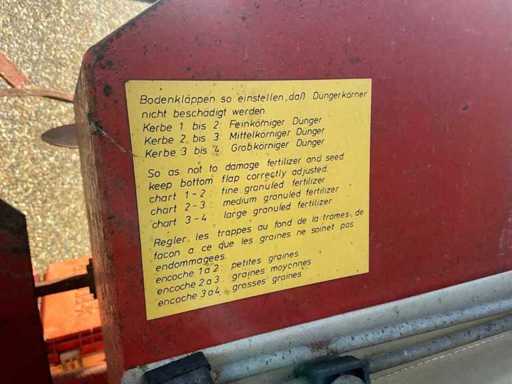 Bodenklappen so einstellen, daß Düngerkörner
nicht beschädigt werden
Kerbe 1 bis 2: Feinkörniger Dünger
Kerbe 2 bis 3: Mittelkörniger Dünger
Kerbe 3 bis 4: Grobkörniger Dünger
So as not to damage fertilizer and seed
keep bottom flap correctly adjusted.
chart 1-2: fine granuled fertilizer
chart 2-3: medium granuled fertilizer
chart 3-4: large granuled fertilizer
Regler, les trappes au fond de la trames, de
facon a ce que les graines ne soinet pas
endommagees.
encoche 1 a 2: petites graines
encoche 2 a 3: graines moyennes
encoche 3 a 4: grosses graines